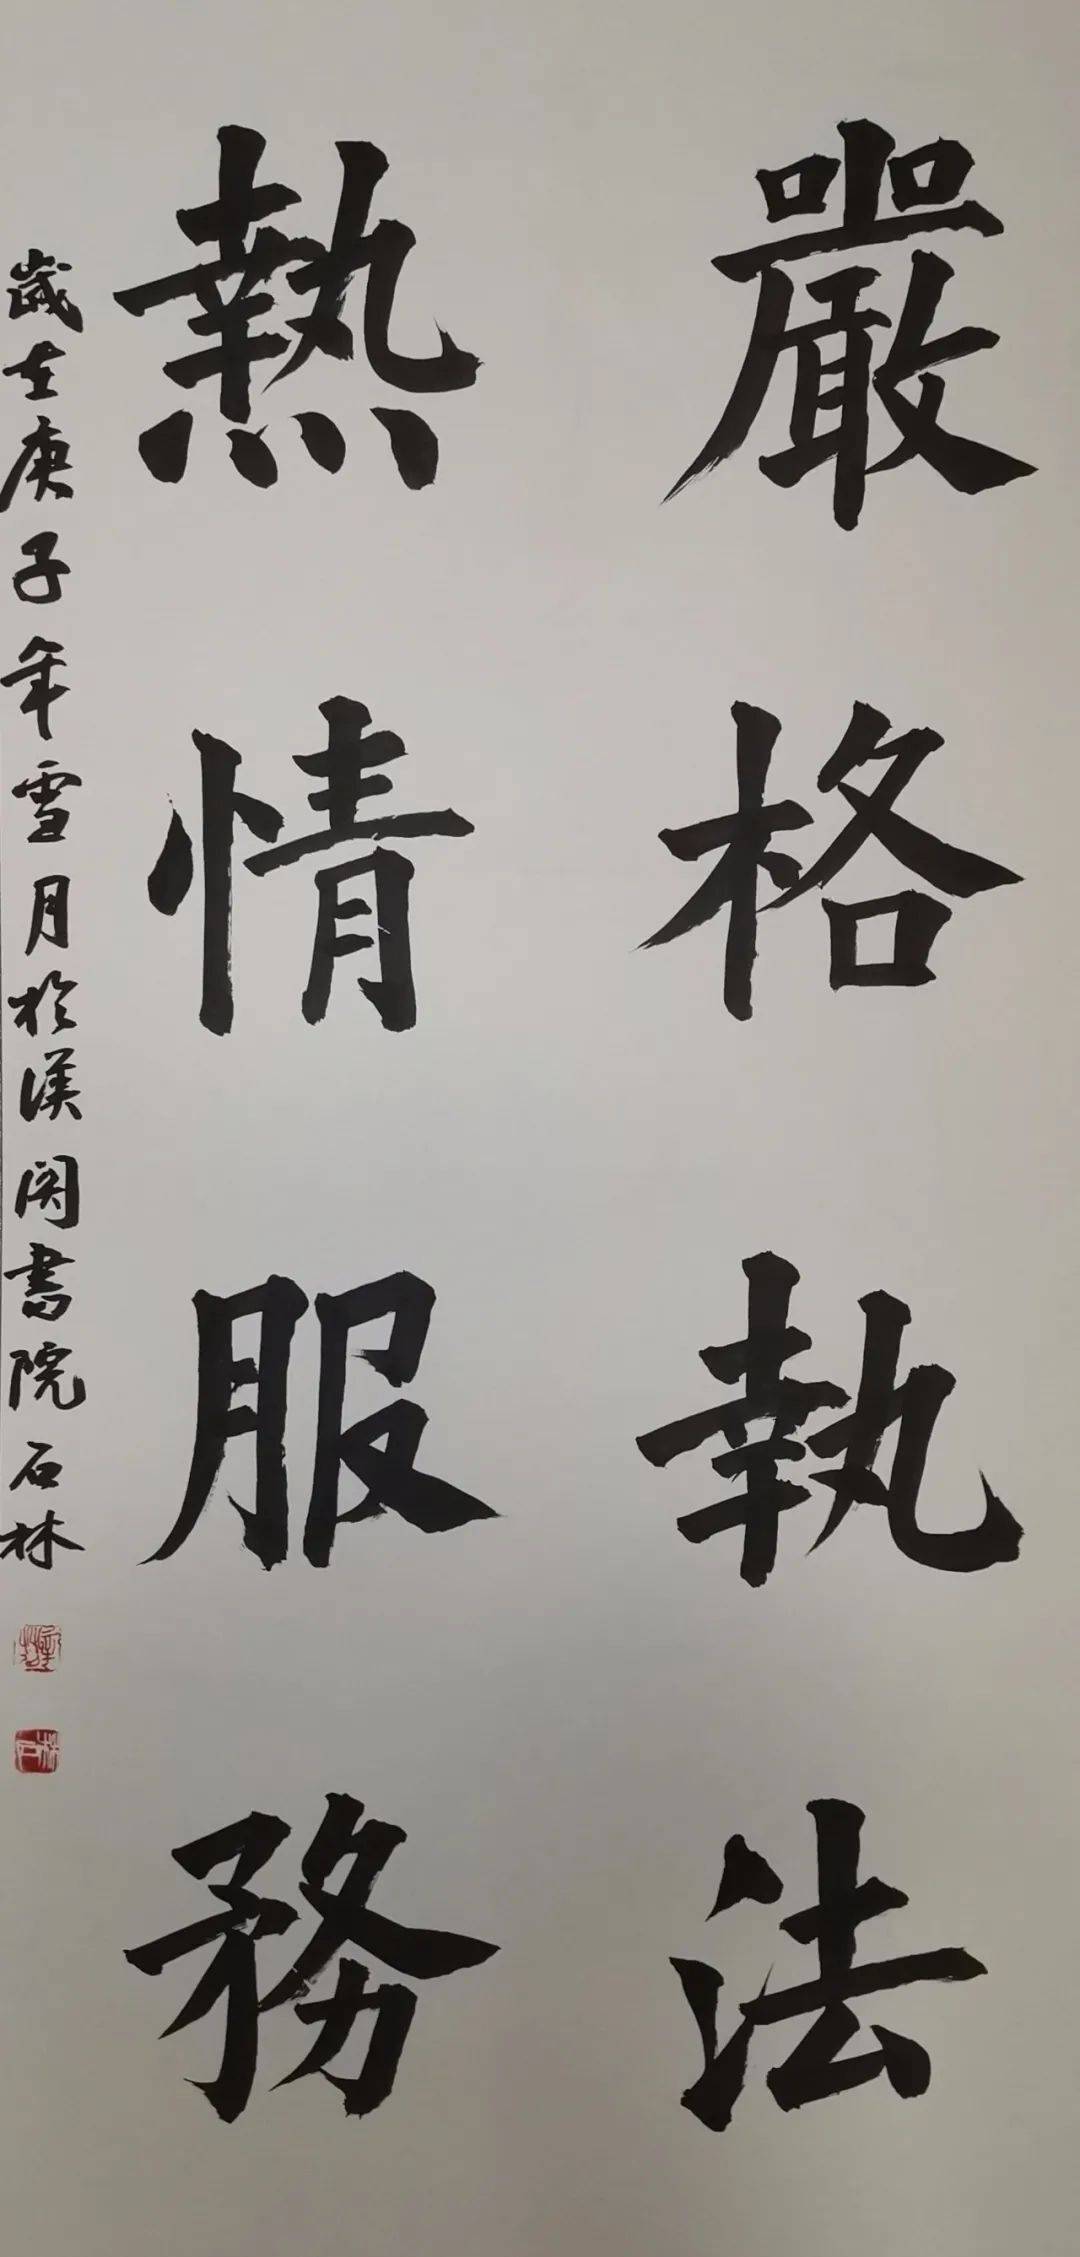 嚴格執法
熱情服務
歲在庚子年雪月於漢閣書院石林